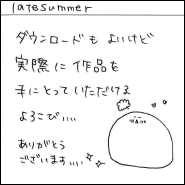 latesummer
ダウンロードも よいけど
実際に 作品を
手にとって いただける
よろこび…
ありがとう
ございます…